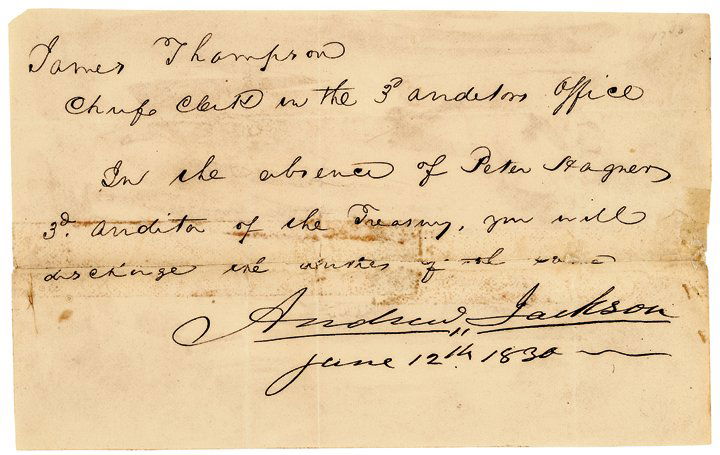 James Thompson
Chief Clerk in the 3d auditors Office
In the absence of Peter Hagner,
3d. auditor of the Treasury, you will
discharge the duties of the
Andrew Jackson
June 12th. 1830